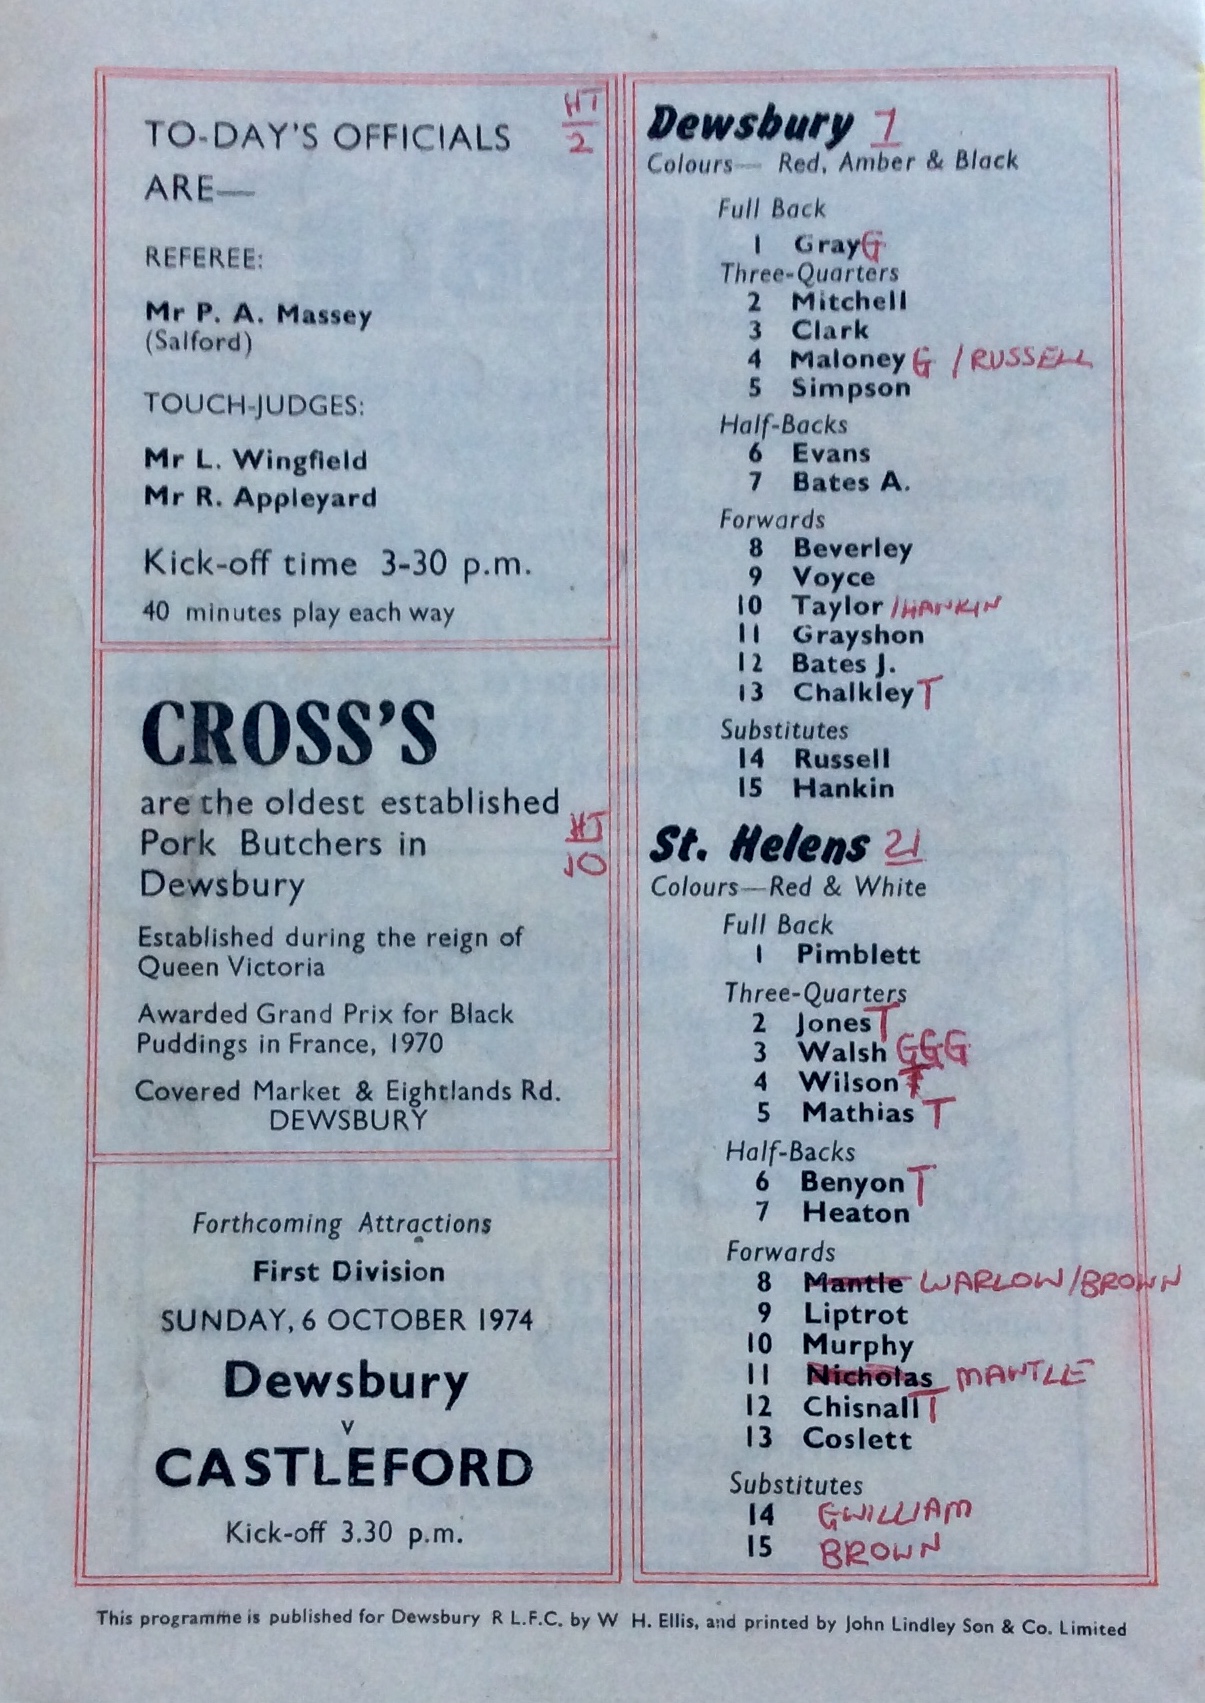 TO-DAY'S OFFICIALS
ARE—
HT
2
REFEREE:
Mr P. A. Massey
(Salford)
TOUCH-JUDGES:
Mr L. Wingfield
Mr R. Appleyard
Kick-off time 3-30 p.m.
40 minutes play each way
CROSS'S
are the oldest established
Pork Butchers in
Dewsbury
HT
10
Established during the reign of
Queen Victoria
Awarded Grand Prix for Black
Puddings in France, 1970
Covered Market & Eightlands Rd.
DEWSBURY
Forthcoming Attractions
First Division
SUNDAY, 6 OCTOBER 1974
Dewsbury
v
CASTLEFORD
Kick-off 3.30 p.m.
Dewsbury 7
Colours— Red, Amber & Black
Full Back
1 Gray G
Three-Quarters
2 Mitchell
3 Clark
4 Maloney G /RUSSELL
5 Simpson
Half-Backs
6 Evans
7 Bates A.
Forwards
8 Beverley
9 Voyce
10 Taylor /HANKIN
11 Grayshon
12 Bates J.
13 Chalkley T
Substitutes
14 Russell
15 Hankin
St. Helens 21
Colours—Red & White
Full Back
1 Pimblett
Three-Quarters
2 Jones T
3 Walsh GGG
4 Wilson
5 Mathias T
Half-Backs
6 Benyon T
7 Heaton
Forwards
8 Mantle WARLOW/BROWN
9 Liptrot
10 Murphy
11 Nicholas MANTLE
12 Chisnall T
13 Coslett
Substitutes
14 GWILLIAM
15 BROWN
This programme is published for Dewsbury R L.F.C. by W H. Ellis, and printed by John Lindley Son & Co. Limited